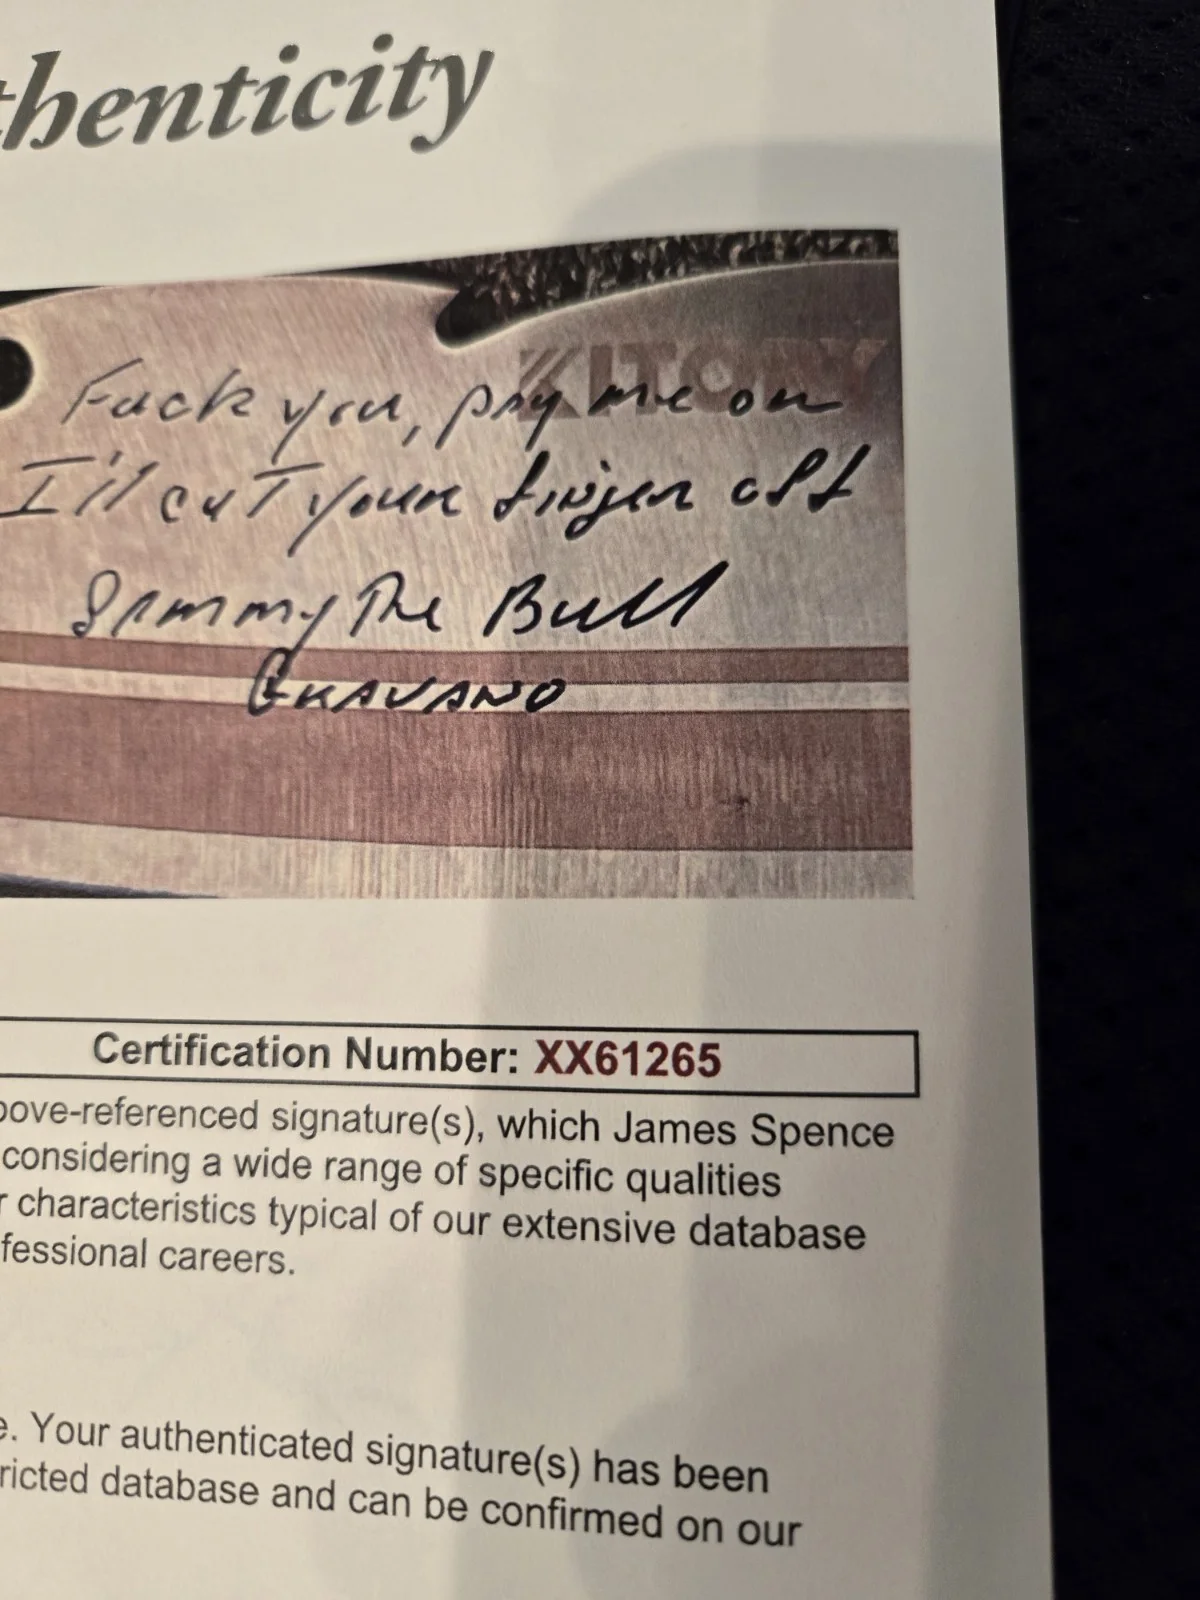 thenticity
KITORY
Fuck you, pay me or
I'll cut your finger off
Sammy The Bull
GRAVANO
Certification Number: XX61265
bove-referenced signature(s), which James Spence
considering a wide range of specific qualities
r characteristics typical of our extensive database
fessional careers.
e. Your authenticated signature(s) has been
ricted database and can be confirmed on our